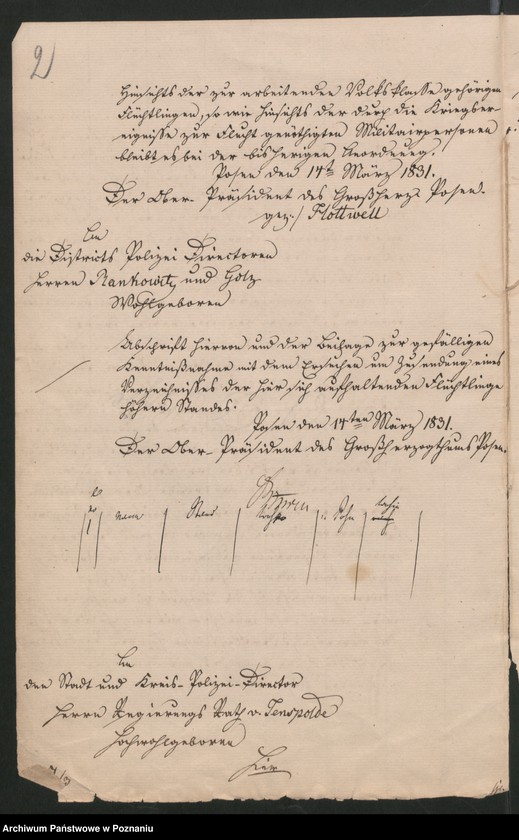 2
Hinsichts der zur arbeitenden Volksklasse gehörigen
Flüchtlinge, so wie hinsichts der durch die Kriegser-
eignisse zur Flucht genöthigten Militairpersonen
bleibt es bei der bisherigen Anordnung.
Posen den 14ten März 1831.
Der Ober-Präsident des Großherz. Posen.
gez:/ Flottwell
An
die Districts Polizei Directoren
Herren Rankowitz und Holz
Wohlgeboren
Abschrift hiervon und der Beilage zur gefälligen
Kenntnißnahme mit dem Ersuchen um Zusendung eines
Verzeichnisses der hier sich aufhaltenden Flüchtlinge
höhern Standes.
Posen den 14ten März 1831.
Der Ober-Präsident des Großherzogthums Posen.
Name Stand
An
den Stadt und Kreis-Polizei-Director
Herrn Regierungs Rath v.
Hochwohlgeboren
Hier
Archiwum Państwowe w Poznaniu